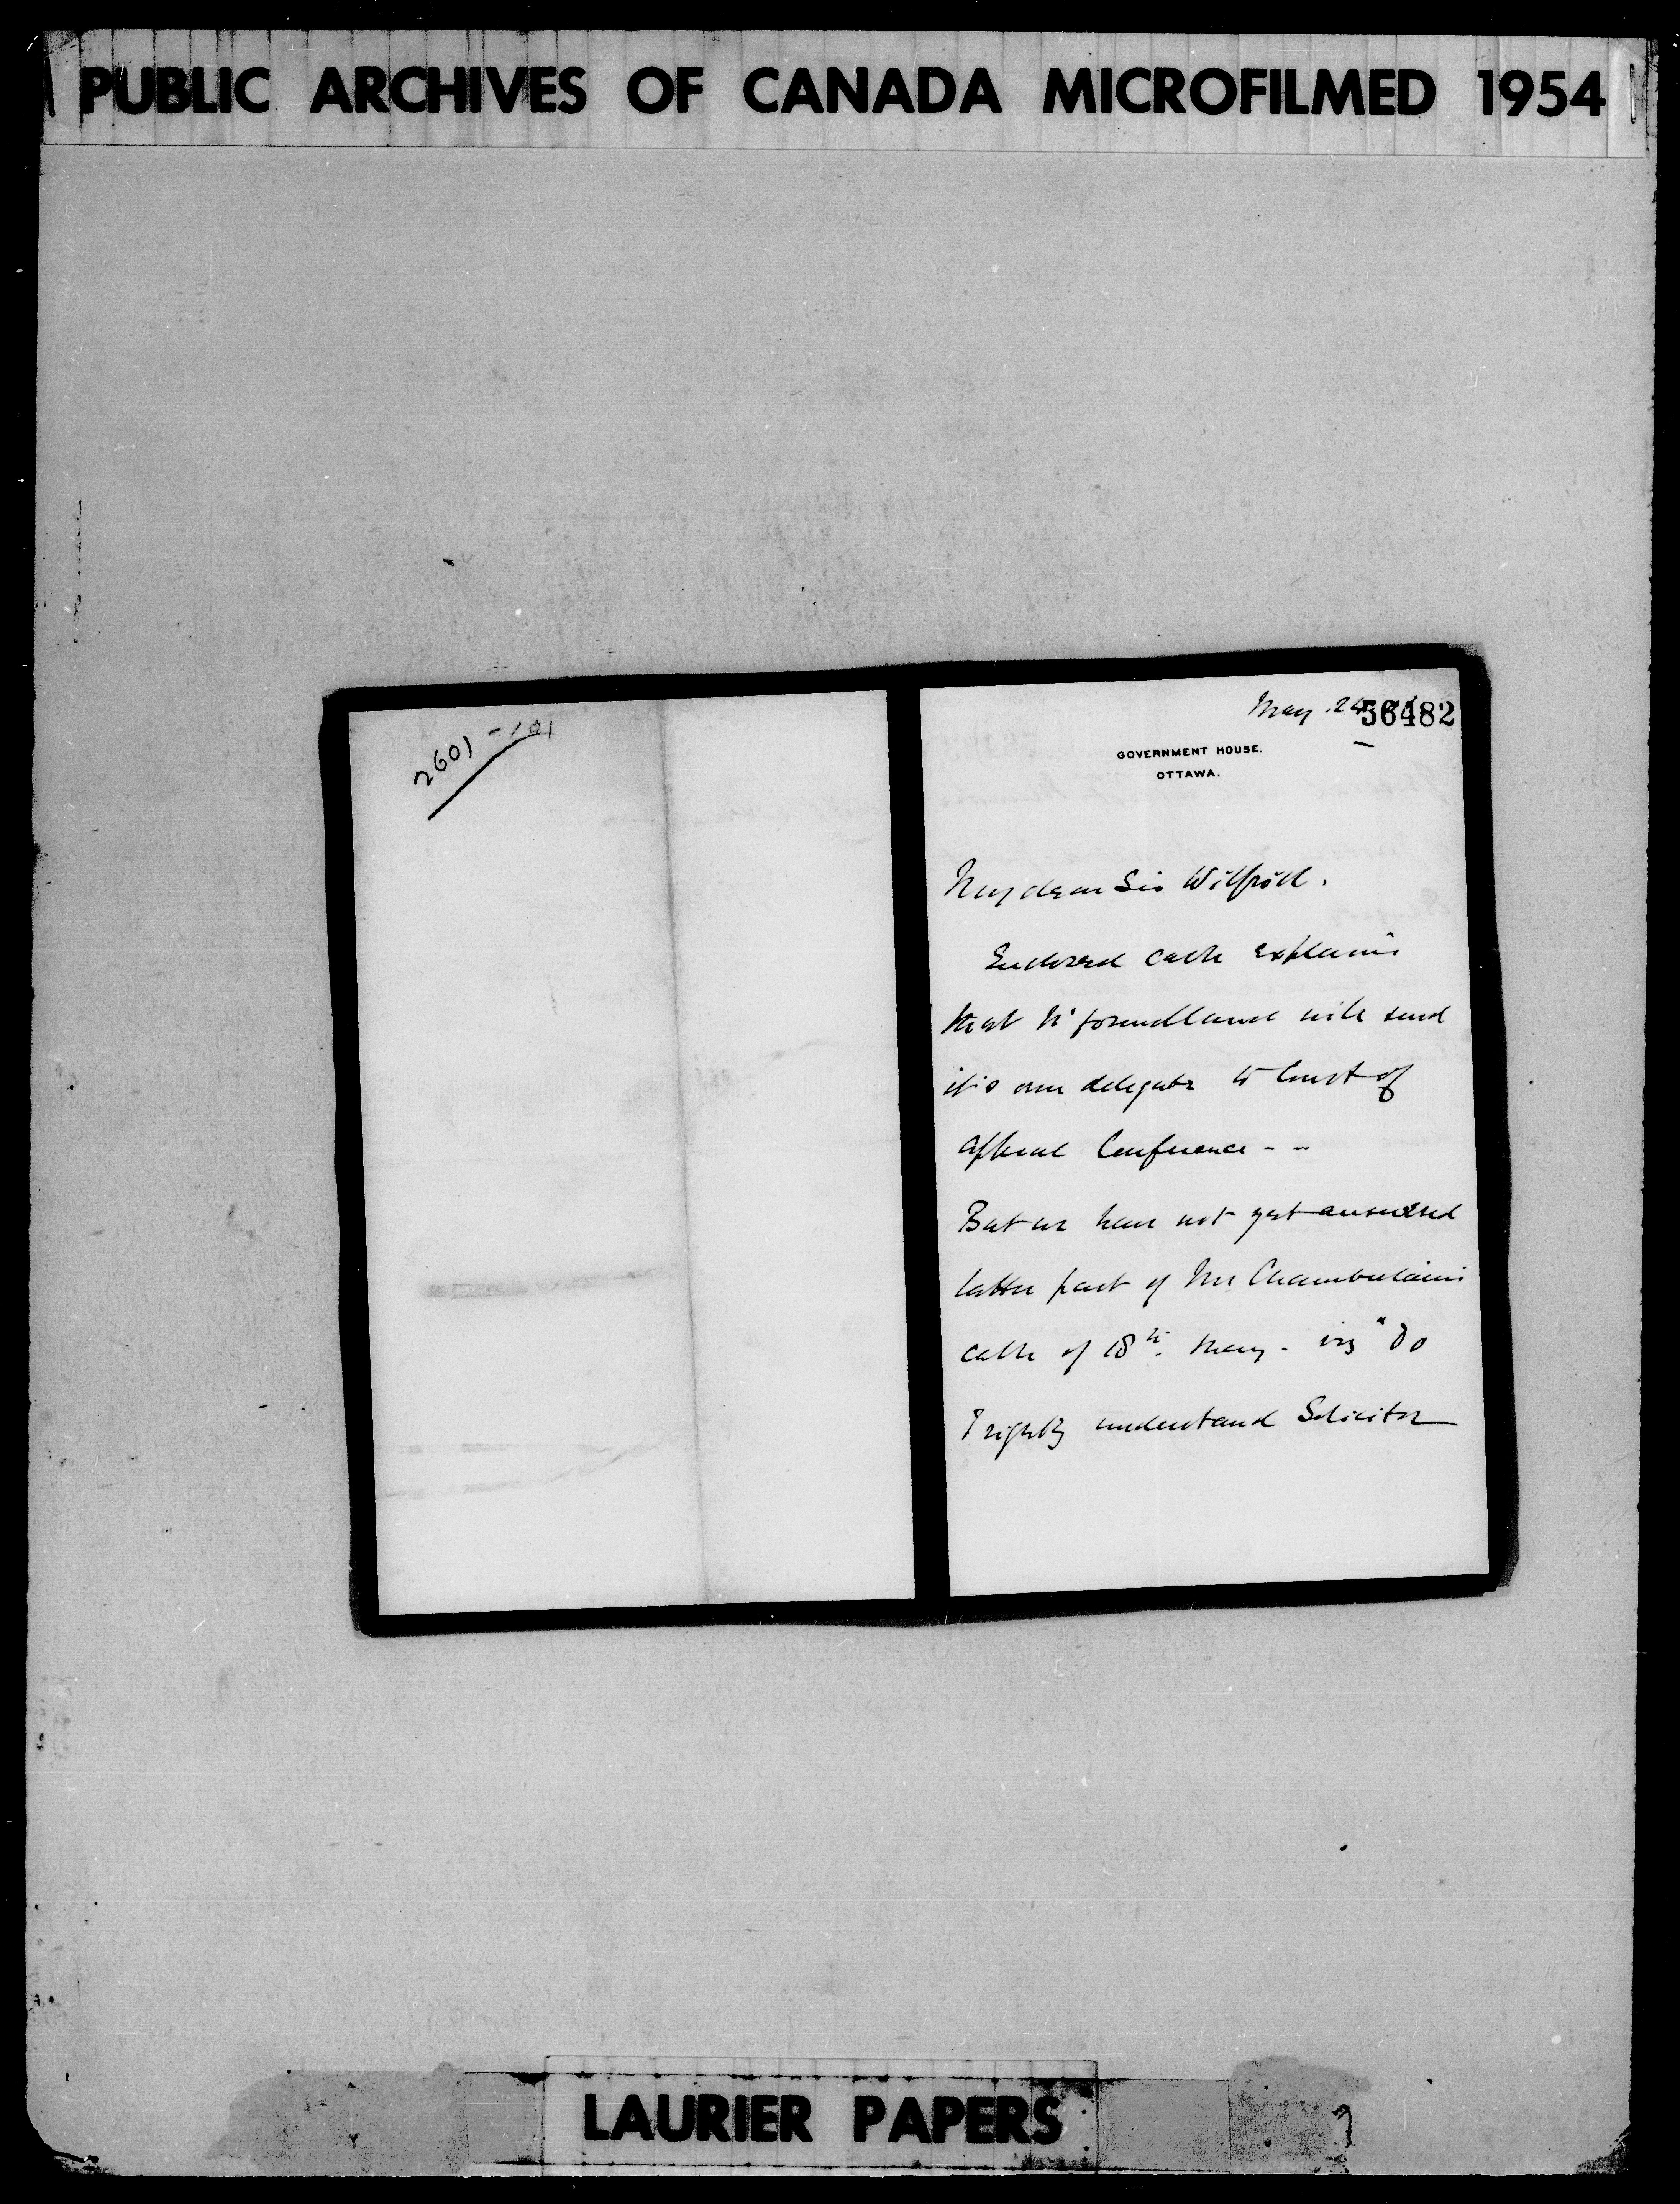 PUBLIC ARCHIVES OF CANADA MICROFILMED 1954
2601-101
May. 24
56482
GOVERNMENT HOUSE.
OTTAWA.
My dear Sir Wilfrid.
Enclosed cable explains
that N'foundland will send
it's own delegate to Court of
Appeal Conference - -
But we have not yet answered
latter part of Mr Chamberlains
cable of 18th. May - viz "Do
I rightly understand Solicitor
LAURIER PAPERS